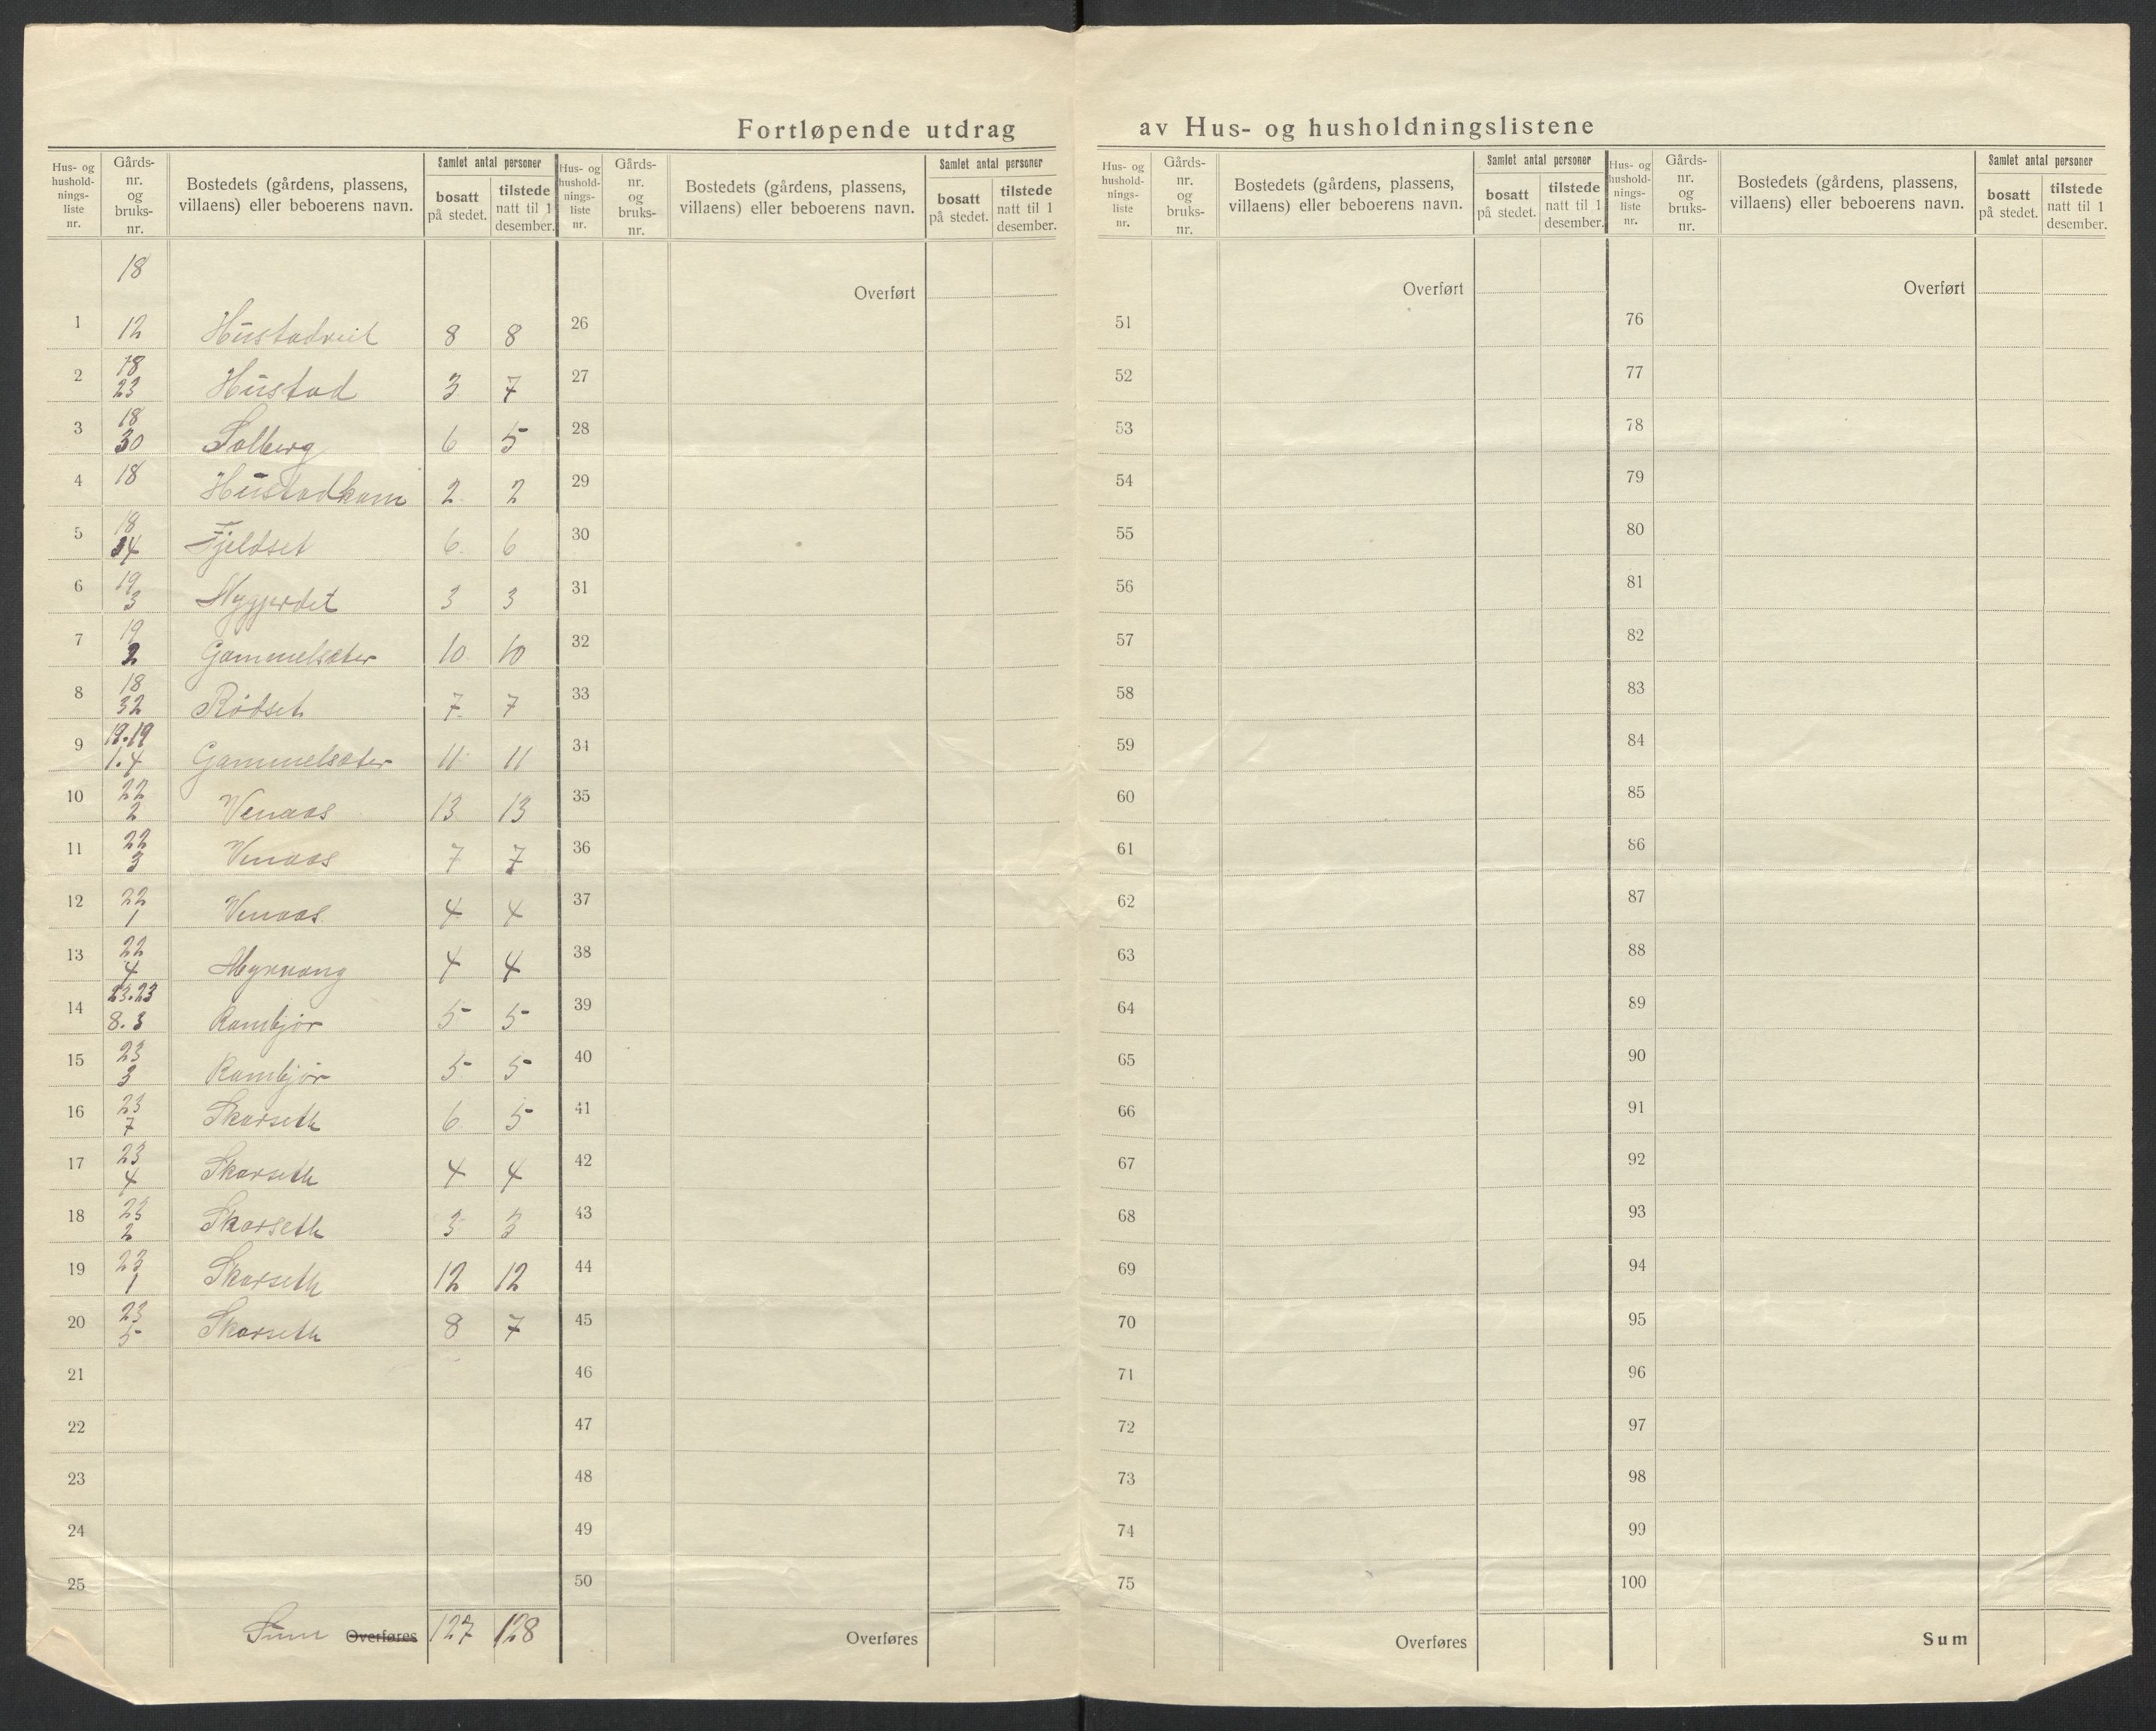 Fortløpende utdrag av Hus- og husholdningslistene
Hus- og hushold-nings-liste nr. Gårds-nr. og bruks-nr. Bostedets (gårdens, plassens, villaens) eller beboerens navn. Samlet antal personer bosatt på stedet. tilstede natt til 1 desember.
Hus- og hushold-nings-liste nr. Gårds-nr. og bruks-nr. Bostedets (gårdens, plassens, villaens) eller beboerens navn. Samlet antal personer bosatt på stedet. tilstede natt til 1 desember.
Hus- og hushold-nings-liste nr. Gårds-nr. og bruks-nr. Bostedets (gårdens, plassens, villaens) eller beboerens navn. Samlet antal personer bosatt på stedet. tilstede natt til 1 desember.
Hus- og hushold-nings-liste nr. Gårds-nr. og bruks-nr. Bostedets (gårdens, plassens, villaens) eller beboerens navn. Samlet antal personer bosatt på stedet. tilstede natt til 1 desember.
18 Overført Overført Overført
1 12 Hustadveit 8 8 26 51 76
2 18 23 Hustad 3 7 27 52 77
3 18 30 Solberg 6 5 28 53 78
4 18 2 2 29 54 79
5 18 Fjeldset 6 6 30 55 80
6 19 3 3 3 31 56 81
7 19 2 Gammelsæter 10 10 32 57 82
8 18 32 Rødset 7 7 33 58 83
9 19.19 1.4 Gammelsæter 11 11 34 59 84
10 22 2 Venaas 13 13 35 60 85
11 22 3 Venaas 7 7 36 61 86
12 22 1 Venaas 4 4 37 62 87
13 22 4 Myrvang 4 4 38 63 88
14 23.23 8.3 Rambjør 5 5 39 64 89
15 23 3 Rambjør 5 5 40 65 90
16 23 7 Skarseth 6 5 41 66 91
17 23 4 Skarseth 4 4 42 67 92
18 23 2 Skarseth 3 3 43 68 93
19 23 1 Skarseth 12 12 44 69 94
20 23 5 Skarseth 8 7 45 70 95
21 46 71 96
22 47 72 97
23 48 73 98
24 49 74 99
25 50 75 100
Sum Overføres 127 128 Overføres Overføres Sum